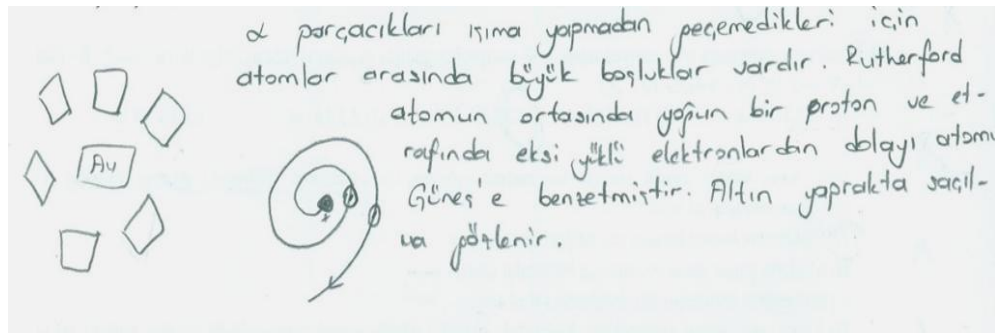 α parçacıkları ışıma yapmadan geçemedikleri için
atomlar arasında büyük boşluklar vardır. Rutherford
atomun ortasında yoğun bir proton ve et-
rafında eksi yüklü elektronlardan dolayı atomu
Güneş'e benzetmiştir. Altın yaprakta saçıl-
ma gözlenir.
Au
+